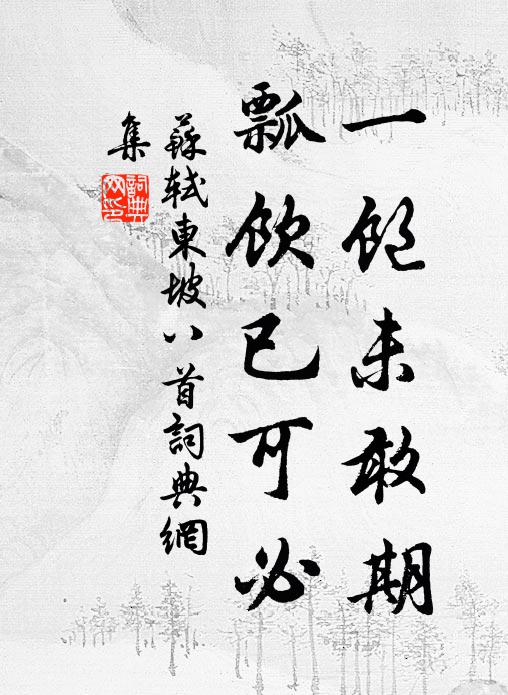 一飽未敢期
瓢飲已可必
蘇軾東坡八首詞典網
集
詞典網印